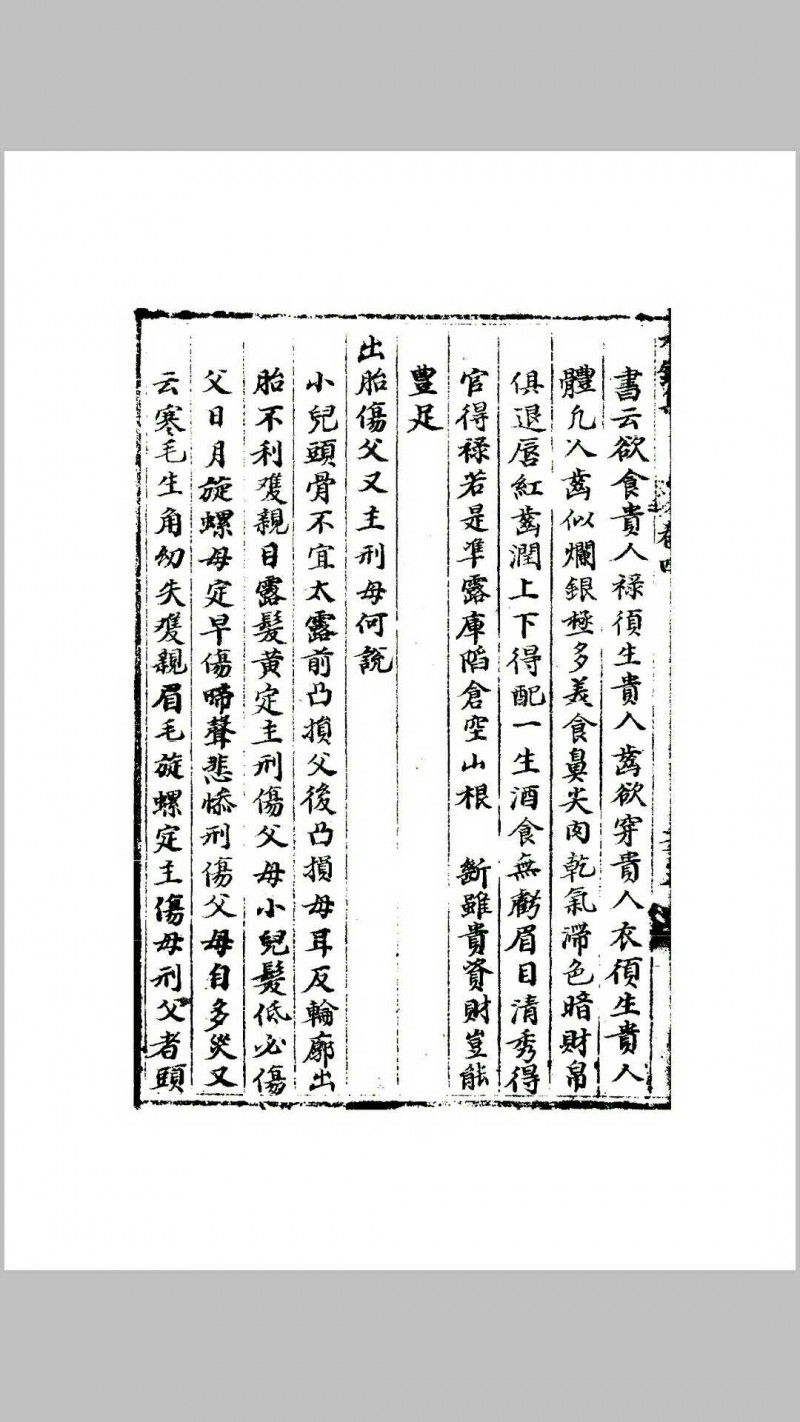 書云欲食貴人祿須生貴人齒欲穿貴人衣須生貴人
體凡人齒似爛銀極多美食鼻尖肉乾氣滯色暗財帛
俱退唇紅齒潤上下得配一生酒食無虧眉目清秀得
官得祿若是準露庫陷倉空山根 斷雖貴資財豈能
豐足
出胎傷父又主刑母何說
小兒頭骨不宜太露前凸損父後凸損母耳反輪廓出
胎不利雙親目露髮黃定主刑傷父母小兒髮低必傷
父日月旋螺母定早傷啼聲悲慘刑傷父母自多災又
云寒毛生角幼失雙親眉毛旋螺定主傷母刑父者頭
卷四